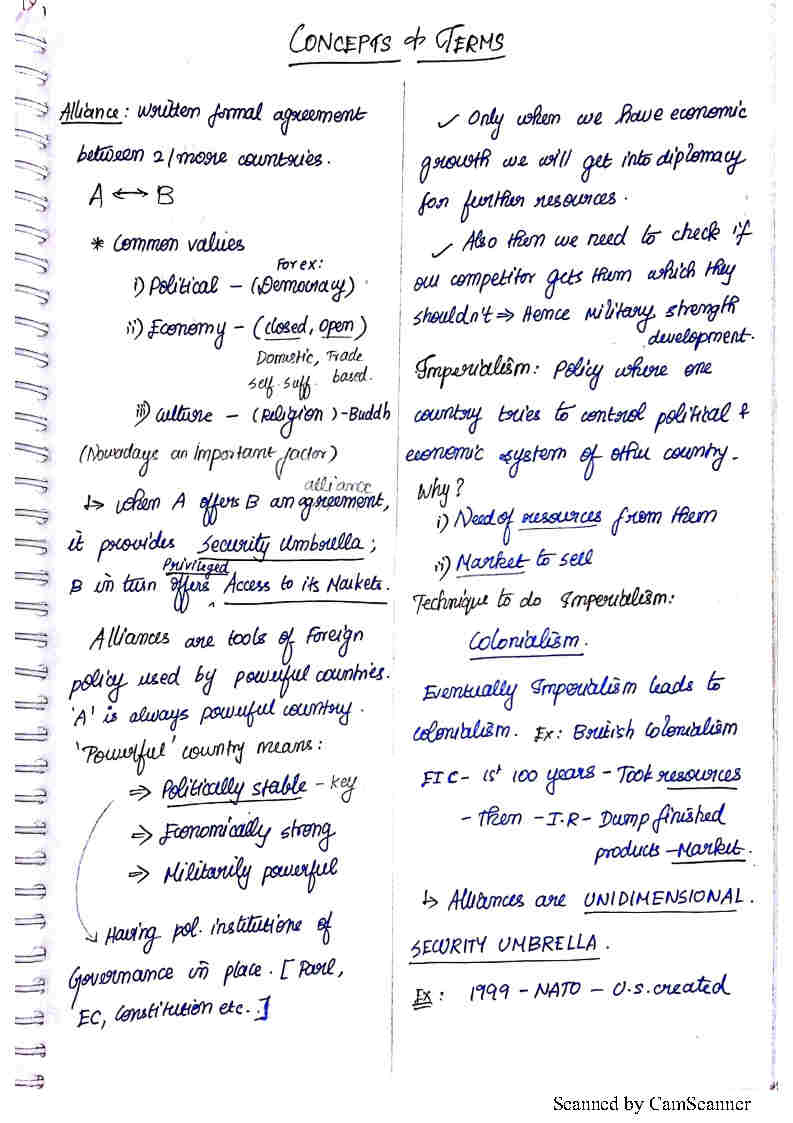 CONCEPTS & TERMS
Alliance: written formal agreement
between 2/more countries.
A ↔ B
* Common values
For ex:
i) Political – (Democracy)
ii) Economy – (closed, open)
Domestic, Trade
self-suff. based.
iii) culture – (Religion) - Buddh
(Nowadays an important factor)
alliance
↳ when A offers B an agreement,
it provides Security Umbrella;
Privileged
B in turn offers ^ Access to its Markets.
Alliances are tools of Foreign
policy used by powerful countries.
'A' is always powerful country.
'Powerful' country means:
⇒ Politically stable – key
⇒ Economically strong
⇒ Militarily powerful
↳ Having pol. institutions of
Governance in place. [Parl,
EC, Constitution etc..]
✓ Only when we have economic
growth we will get into diplomacy
for further resources.
✓ Also then we need to check if
our competitor gets them which they
shouldn't ⇒ Hence Military strength
development.
Imperialism: Policy where one
country tries to control political &
economic system of other country.
Why?
i) Need of resources from them
ii) Market to sell
Technique to do Imperialism:
Colonialism.
Eventually Imperialism leads to
colonialism. Ex: British Colonialism
EIC – 1st 100 years – Took resources
– then – I.R – Dump finished
products – Market.
↳ Alliances are UNIDIMENSIONAL.
SECURITY UMBRELLA.
Ex: 1999 – NATO – U.S. created
Scanned by CamScanner